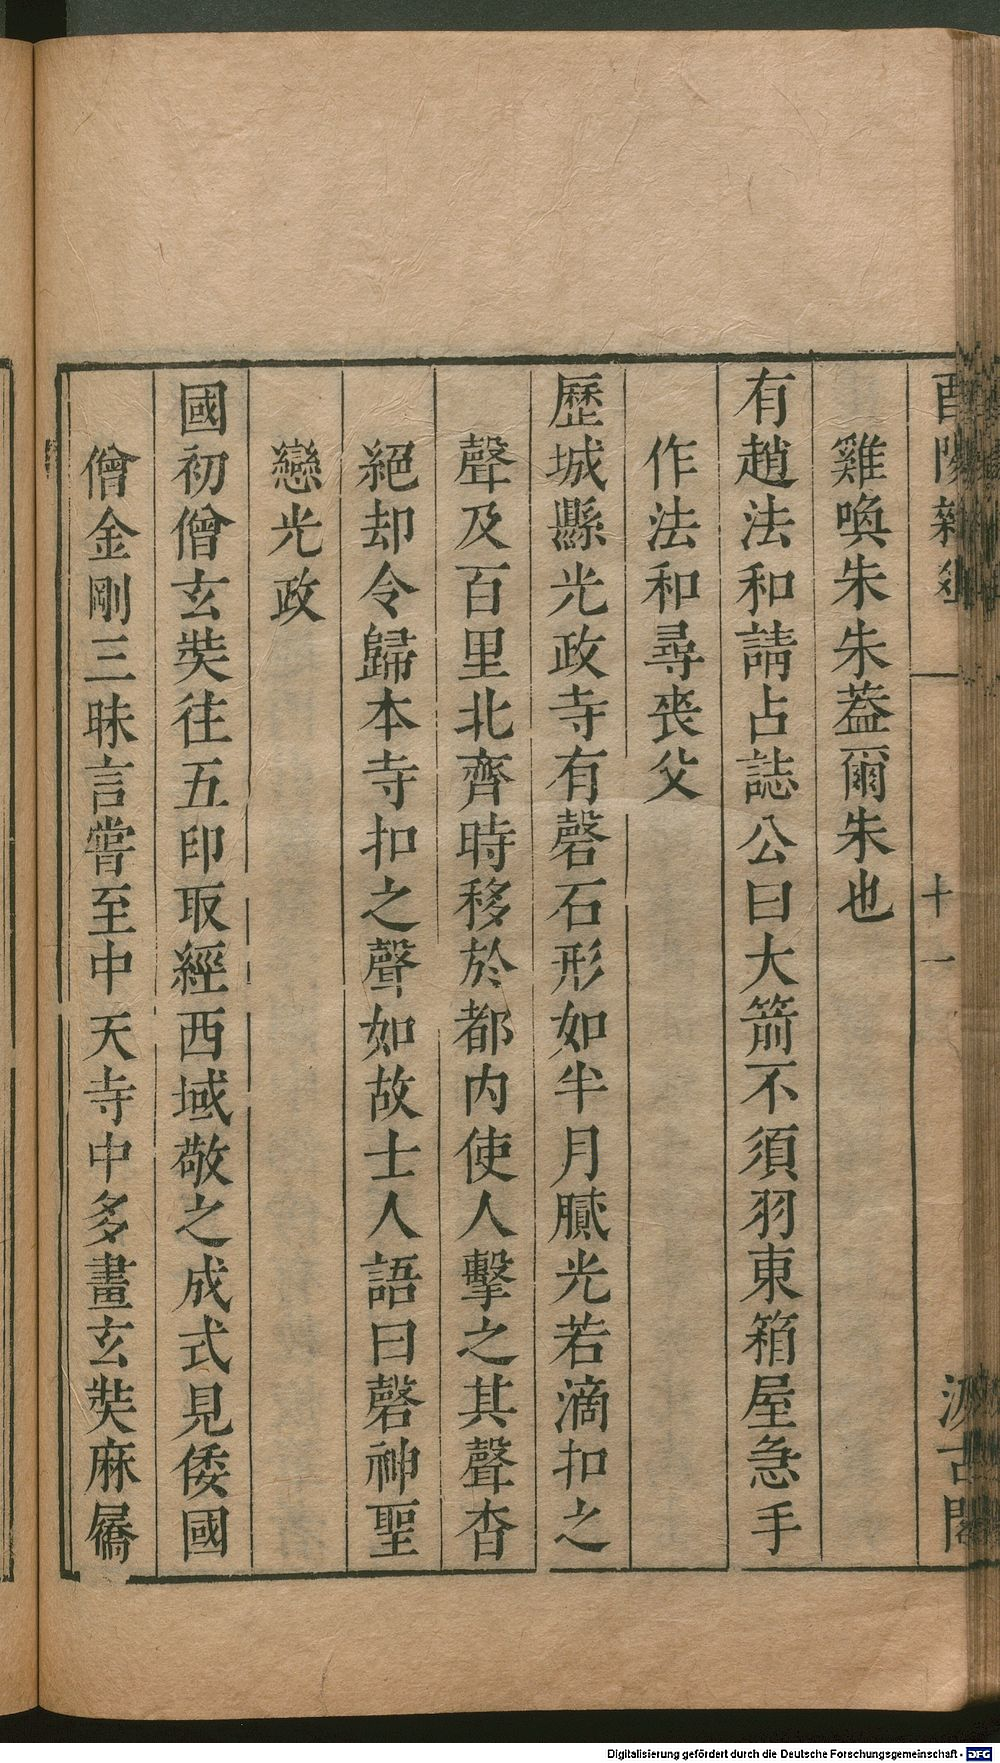 酉陽雜俎
十一
汲古閣
雞喚朱朱葢爾朱也
有趙法和請占誌公曰大箭不須羽東箱屋急手
作法和尋喪父
歷城縣光政寺有磬石形如半月膩光若滴扣之
聲及百里北齊時移於都内使人擊之其聲杳
絕却令歸本寺扣之聲如故士人語曰磬神聖
戀光政
國初僧玄奘往五印取經西域敬之成式見倭國
僧金剛三昧言嘗至中天寺中多畫玄奘麻屩
Digitalisierung gefördert durch die Deutsche Forschungsgemeinschaft - DFG